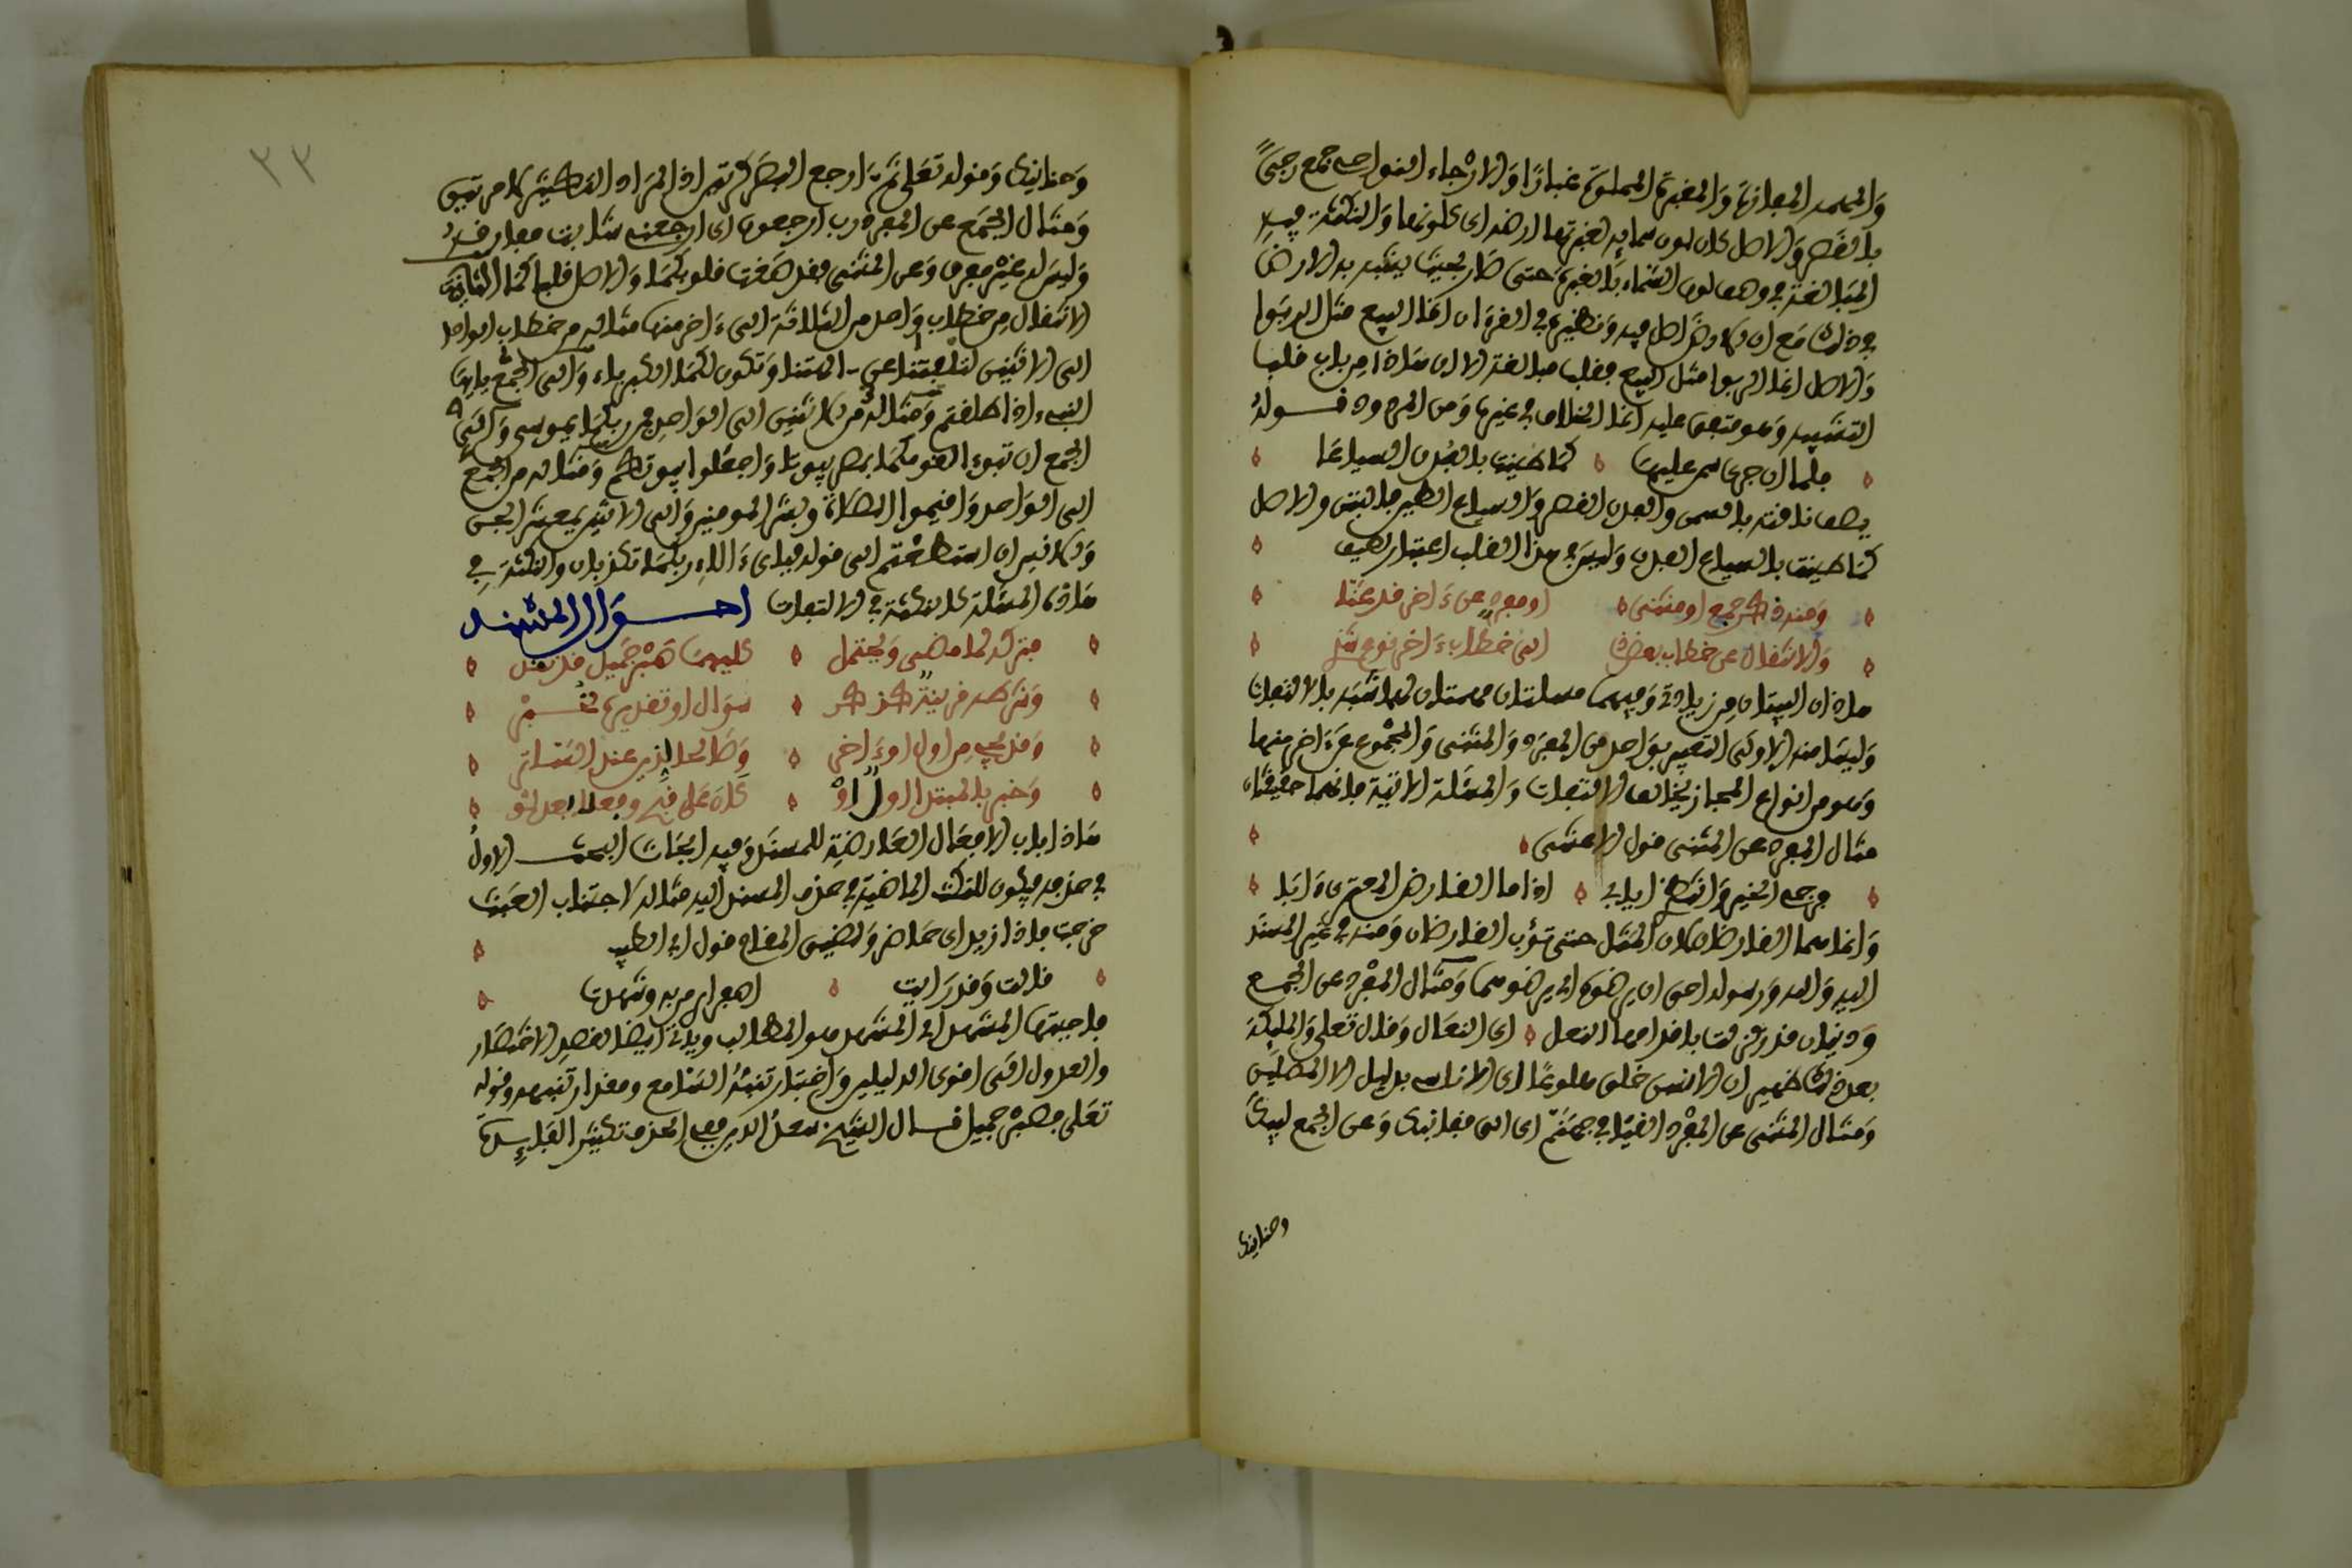 والمهمه المفازة والمغبرة المملوة غبارا والارجاء النواحى جمع رجى
بالقصر والاصل كان لون سمايه لغبرتها ارضه اى كلونها والنكتة فيه
المبالغة فى وصف لون السماء بالغبرة حتى صار بحيث يشبه به الارض
فى ذلك مع ان الارض اصل فيه ونظيره فى القرءان انما البيع مثل الربوا
والاصل انما الربوا مثل البيع فقلب مبالغة الا ان هذا من باب قلب
التشبيه وهو متفق عليه انما الخلاف فى غيره ومن المردود قوله
فلما ان جرى سمن عليها كما طينت بالفدن السياعا
يصف ناقته بالسمن والفدن القصر والسياع الطين بالتبن والاصل
كما طينت بالسياع الفدن وليس فى هذا القلب اعتبار لطيف
ومنه ذكر جمع او مثنى او مفرد عن ءاخر قد عنا
والانتقال من خطاب بعض ذا الى خطاب ءاخر نوع شذ
هاذان البيتان من زيادتى وفيهما مسئلتان مهمتان لهما شبه بالالتفات
وليسا منه الاولى التعبير بواحد من المفرد والمثنى والمجموع عن ءاخر منها
وهو من انواع المجاز بخلاف الالتفات والمسئلة الاتية فانهما حقيقتان
مثال المفرد عن المثنى قول الاعشى
فرجى الخير وانتظرى ايابى اذا ما القارض العنزى ءابا
وانما هما القارظان لان المثل حتى تؤب القارظان ومنه فى غير المسند
اليه والله ورسوله احق ان يرضوه اى يرضوهما ومثال المفرد عن الجمع
وذبيان قد زلت باقدامها النعل اى النعال وقال تعلى والمليكة
بعد ذلك ظهير ان الانسن خلق هلوعا اى الاناسى بدليل الا المصلين
ومثال المثنى عن المفرد القيا فى جهنم اى الق قفا نبك وعن الجمع لبيك
وحنانيك
وحنانيك وقوله تعلى ثم ارجع البصر كرتين اذ المراد التكثير لا مرتين
ومثال الجمع عن المفرد رب ارجعون اى ارجعنى شابت مفارقه
وليس له غير مفرق وعن المثنى فقد صغت قلوبكما والاصل قلبا كما الثانية
الانتقال من خطاب واحد من الثلاثة الى ءاخر منها مثاله من خطاب الواحد
الى الاثنين لتلفتنا عن الهتنا وتكون لكما الكبرياء والى الجمع يايها
النبىء اذا طلقتم ومثاله من الاثنين الى الواحد فمن ربكما يموسى والى
الجمع ان تبوءا لقومكما بمصر بيوتا واجعلوا بيوتكم ومثاله من الجمع
الى الواحد واقيموا الصلاة وبشر المومنين والى الاثنين يمعشر الجن
والانس ان استطعتم الى قوله فباى ءالاء ربكما تكذبان والنكتة فى
هاذه المسئلة كالنكتة فى الالتفات احوال المسند
فتركه لما مضى ويحتمل كليهما صبر جميل قد نقل
وشرطه قرينة كذكر سؤال او تقديره
وقد يجى من اول او ءاخر وصالحا لذين عند الساتر
وخبر بالمبتدا اول او
هاذا باب الافعال العارضة للمسند وفيه ابحاث البحث الاول
فى حذفه فيكون للنكت الماضية فى حذف المسند اليه مثاله لاجتناب العبث
خرجت فاذا زيد اى حاضر ولضيق المقام قول ابى الطيب
قالت وقد رات اصفرارى من به وتنهدت
فاجبتها المتنهد اى المتنهد هو المطالب وياتى ايضا لقصد الاختصار
والعدول الى اقوى الدليلين واختبار تنبه السامع ومقدار تنبهه وقوله
تعلى فصبر جميل قال الشيخ سعد الدين ففى الحذف تكثير الفايدة
٢٣